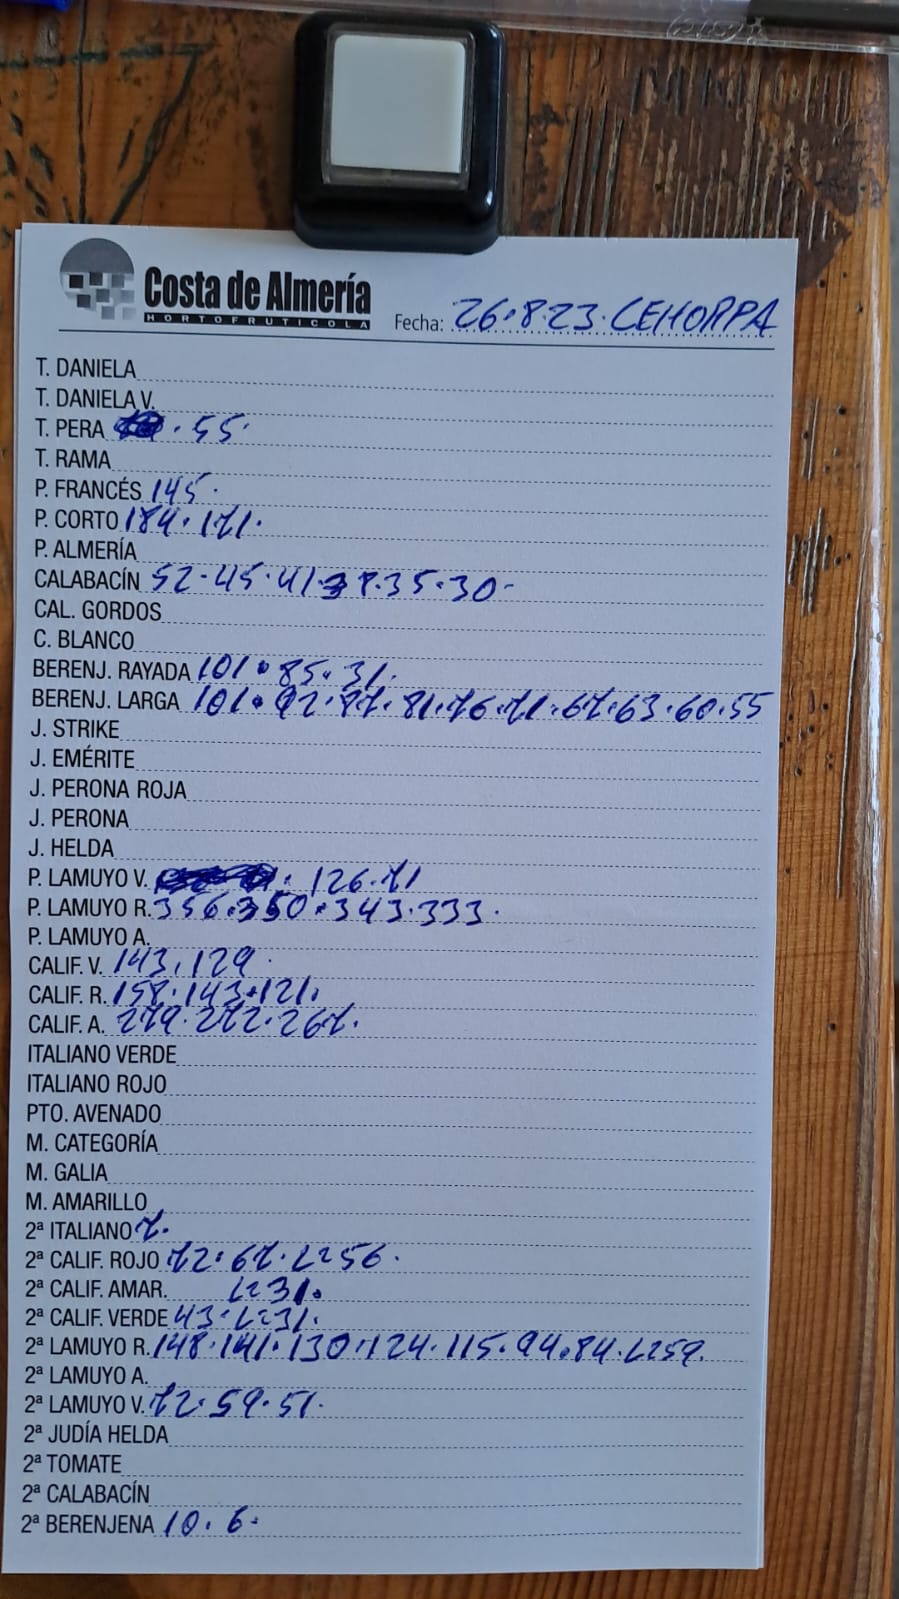 Costa de Almería
HORTOFRUTICOLA
Fecha: 26.8.23. CEHORPA
T. DANIELA
T. DANIELA V.
T. PERA . 55.
T. RAMA
P. FRANCÉS 145.
P. CORTO 184. 171.
P. ALMERÍA
CALABACÍN 52. 45. 41. 38. 35. 30-
CAL. GORDOS
C. BLANCO
BERENJ. RAYADA 101. 85. 31.
BERENJ. LARGA 101. 92. 87. 81. 76. 71. 67. 63. 60. 55
J. STRIKE
J. EMÉRITE
J. PERONA ROJA
J. PERONA
J. HELDA
P. LAMUYO V. . 126. 71
P. LAMUYO R. 356. 350. 343. 333.
P. LAMUYO A.
CALIF. V. 143. 129.
CALIF. R. 158. 143. 121.
CALIF. A. 279. 272. 267.
ITALIANO VERDE
ITALIANO ROJO
PTO. AVENADO
M. CATEGORÍA
M. GALIA
M. AMARILLO
2ª ITALIANO 7.
2ª CALIF. ROJO 72. 67. L=56.
2ª CALIF. AMAR. L=31.
2ª CALIF. VERDE 43. L=31.
2ª LAMUYO R. 148. 141. 130. 124. 115. 94. 84. L=59.
2ª LAMUYO A.
2ª LAMUYO V. 72. 59. 51.
2ª JUDÍA HELDA
2ª TOMATE
2ª CALABACÍN
2ª BERENJENA 10. 6.